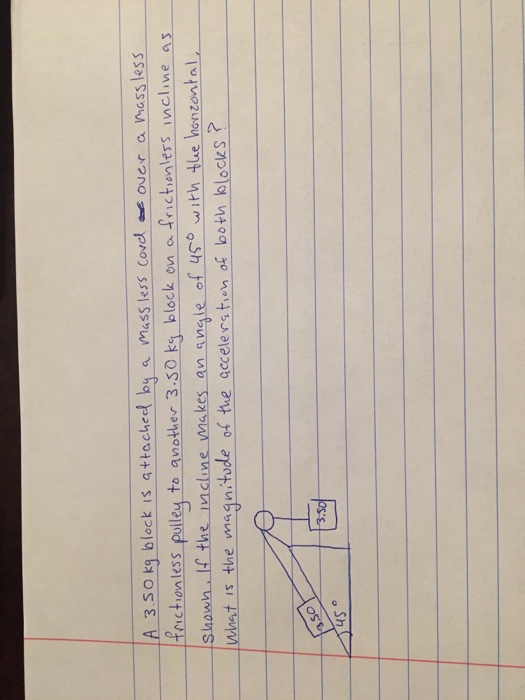 A 3.50 kg block is attached by a massless cord over a massless
frictionless pulley to another 3.50 kg block on a frictionless incline as
shown. If the incline makes an angle of 45° with the horizontal,
What is the magnitude of the acceleration of both blocks?
3.50
3.50
45°